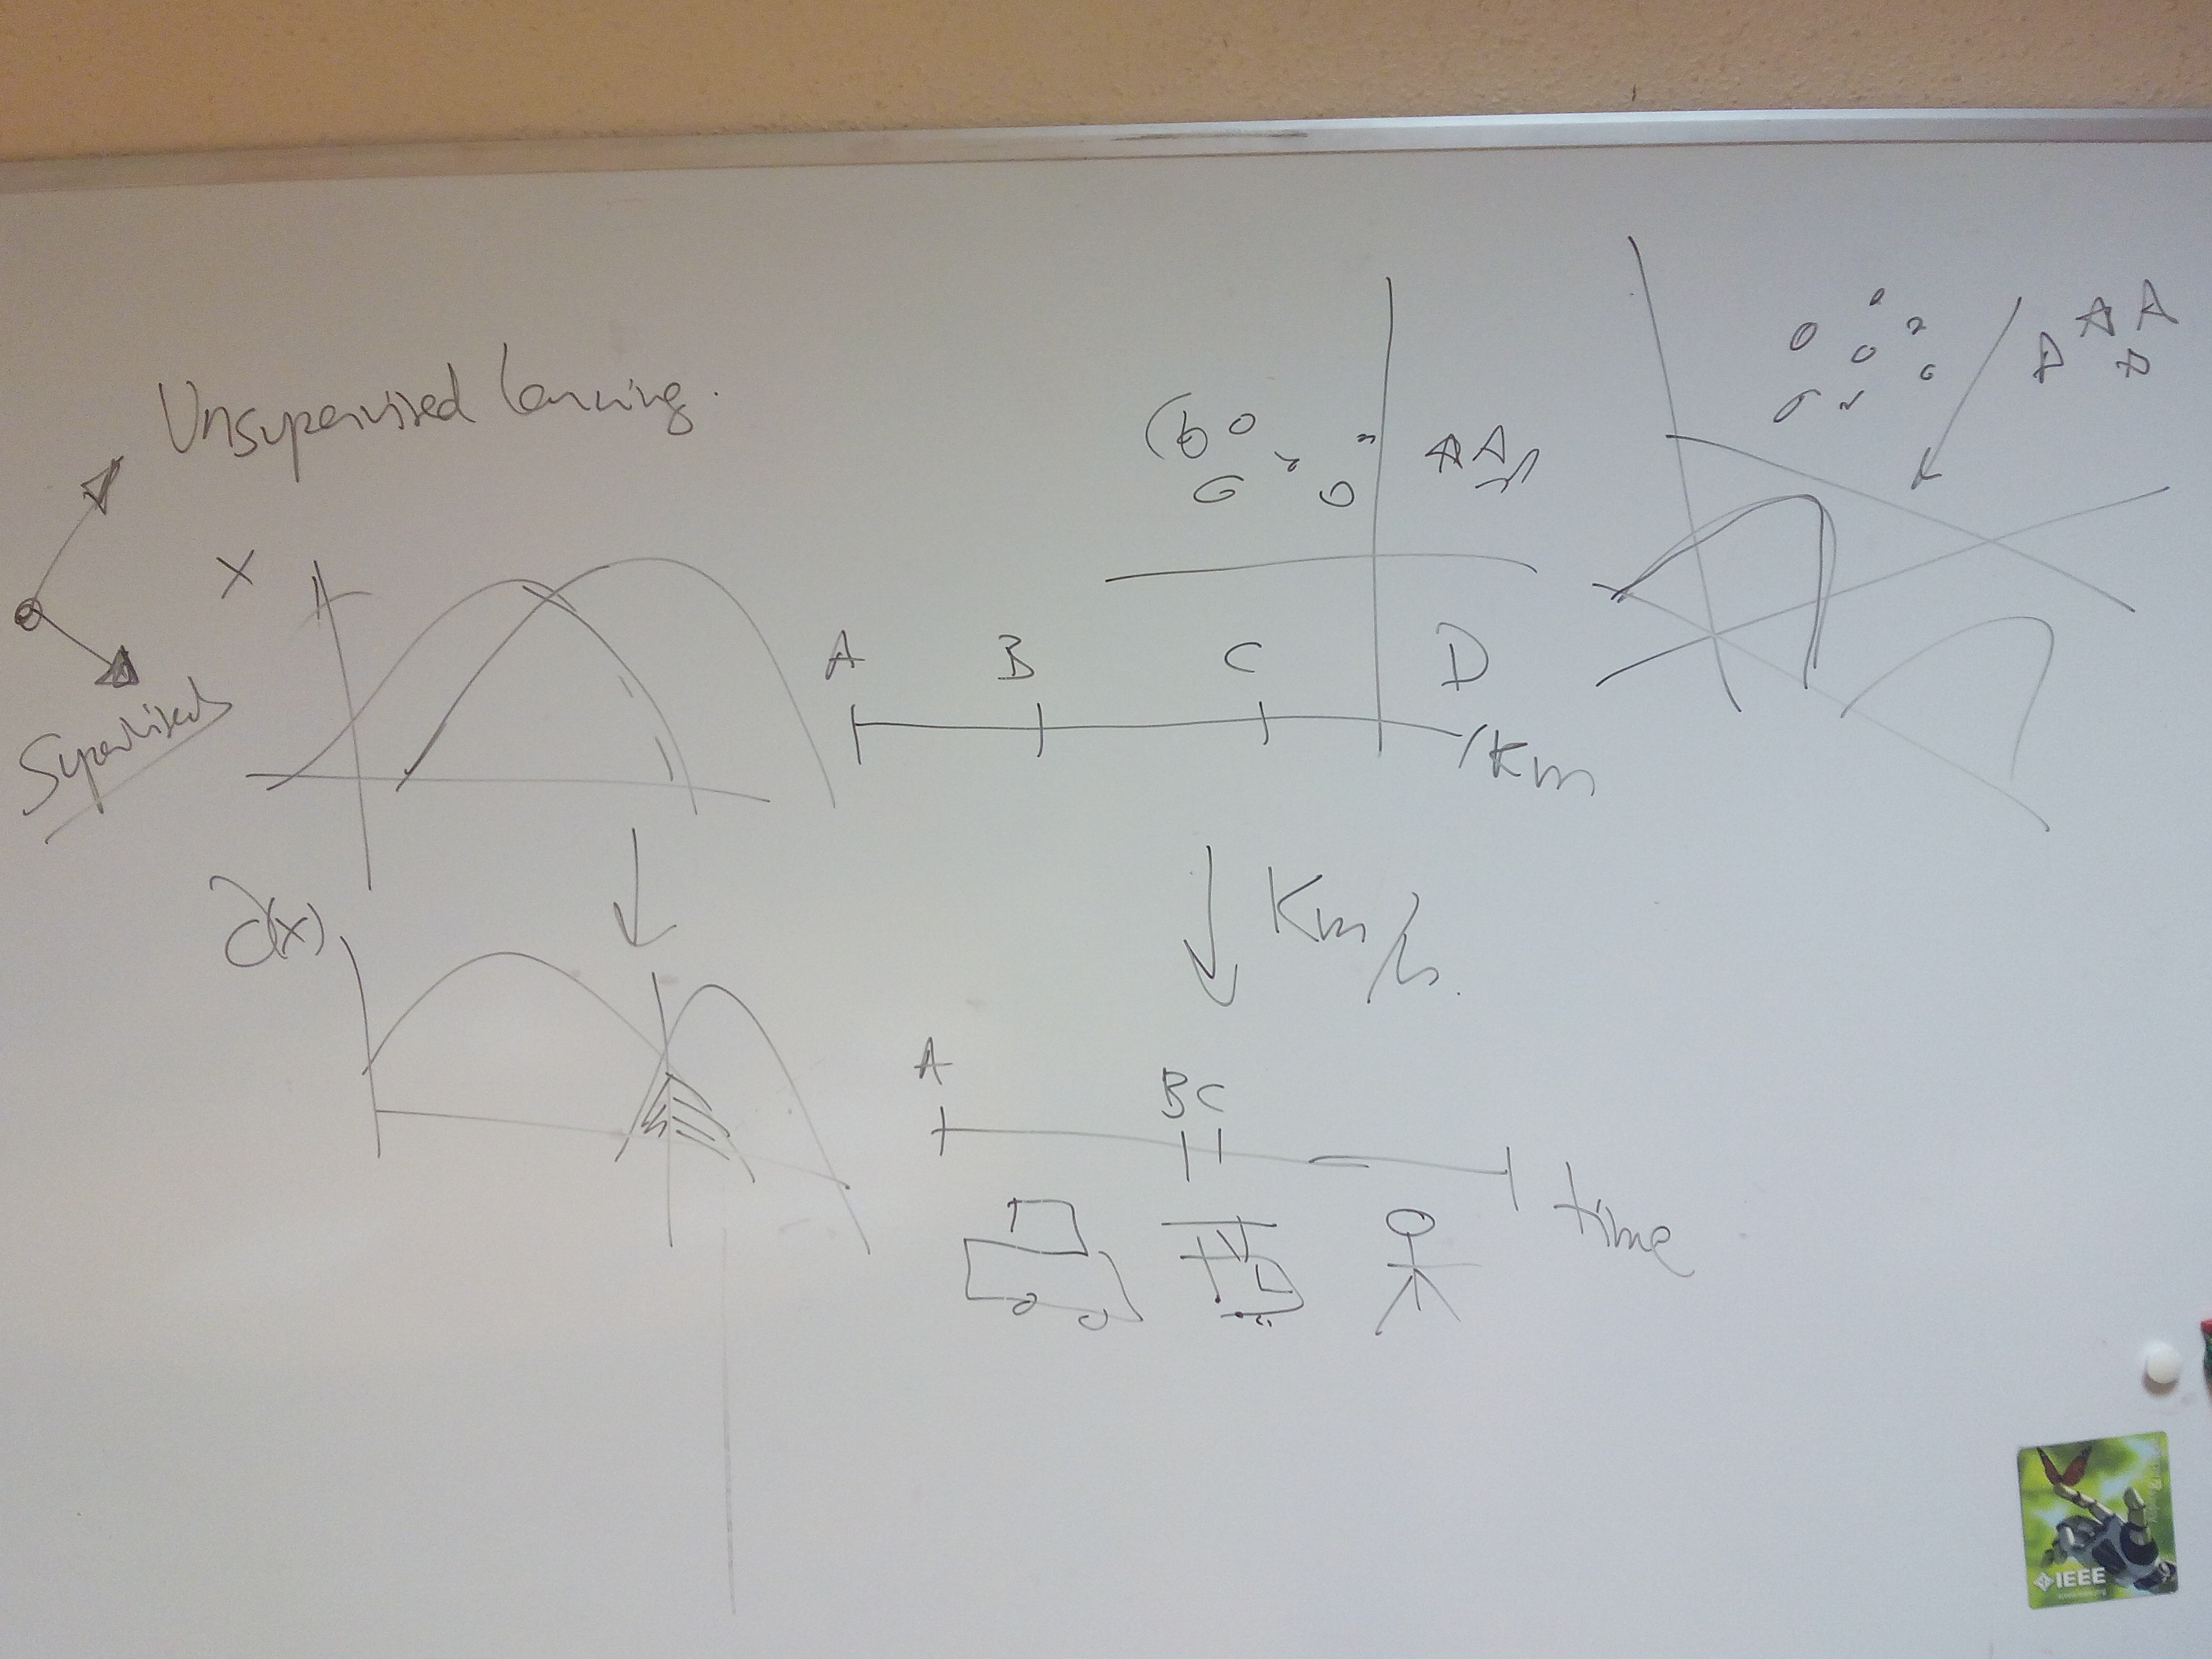 Unsupervised learning.
Supervised
X
∂(x)
A B C D
Km
Km/h.
A
BC
time
IEEE